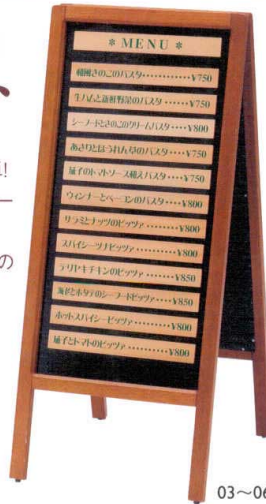 ＊ MENU ＊
和風きのこのパスタ・・・・・・・・・・・・・¥750
生ハムと新鮮野菜のパスタ・・・・・・¥750
シーフードときのこのクリームパスタ・・・・¥800
あさりとほうれん草のパスタ・・・・・¥750
茄子のトマトソース和えパスタ・・・・¥750
ウィンナーとベーコンのパスタ・・・・¥800
サラミとナッツのピッツァ・・・・・・・・¥800
スパイシーツナピッツァ・・・・・・・・・¥800
テリヤキチキンのピッツァ・・・・・・・¥850
海老とホタテのシーフードピッツァ・・・・¥850
ホットスパイシーピッツァ・・・・・・¥800
茄子とトマトのピッツァ・・・・・・・・・・¥800
!
の
03～06